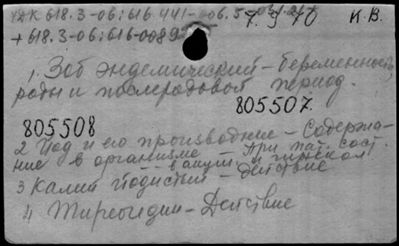 УДК 618.3-06:616.441-006.5
7.9.70 К.В.
+618.3-06:616-0089
1. Зоб эндемический - беременность,
роды и послеродовой период.
805507
805508
2 Йод и его производные - Содержа-
ние в организме - При пат. сост.
- в акуш. и гинекол
3 Калий йодистый - действие
4 Тиреоидин - Действие